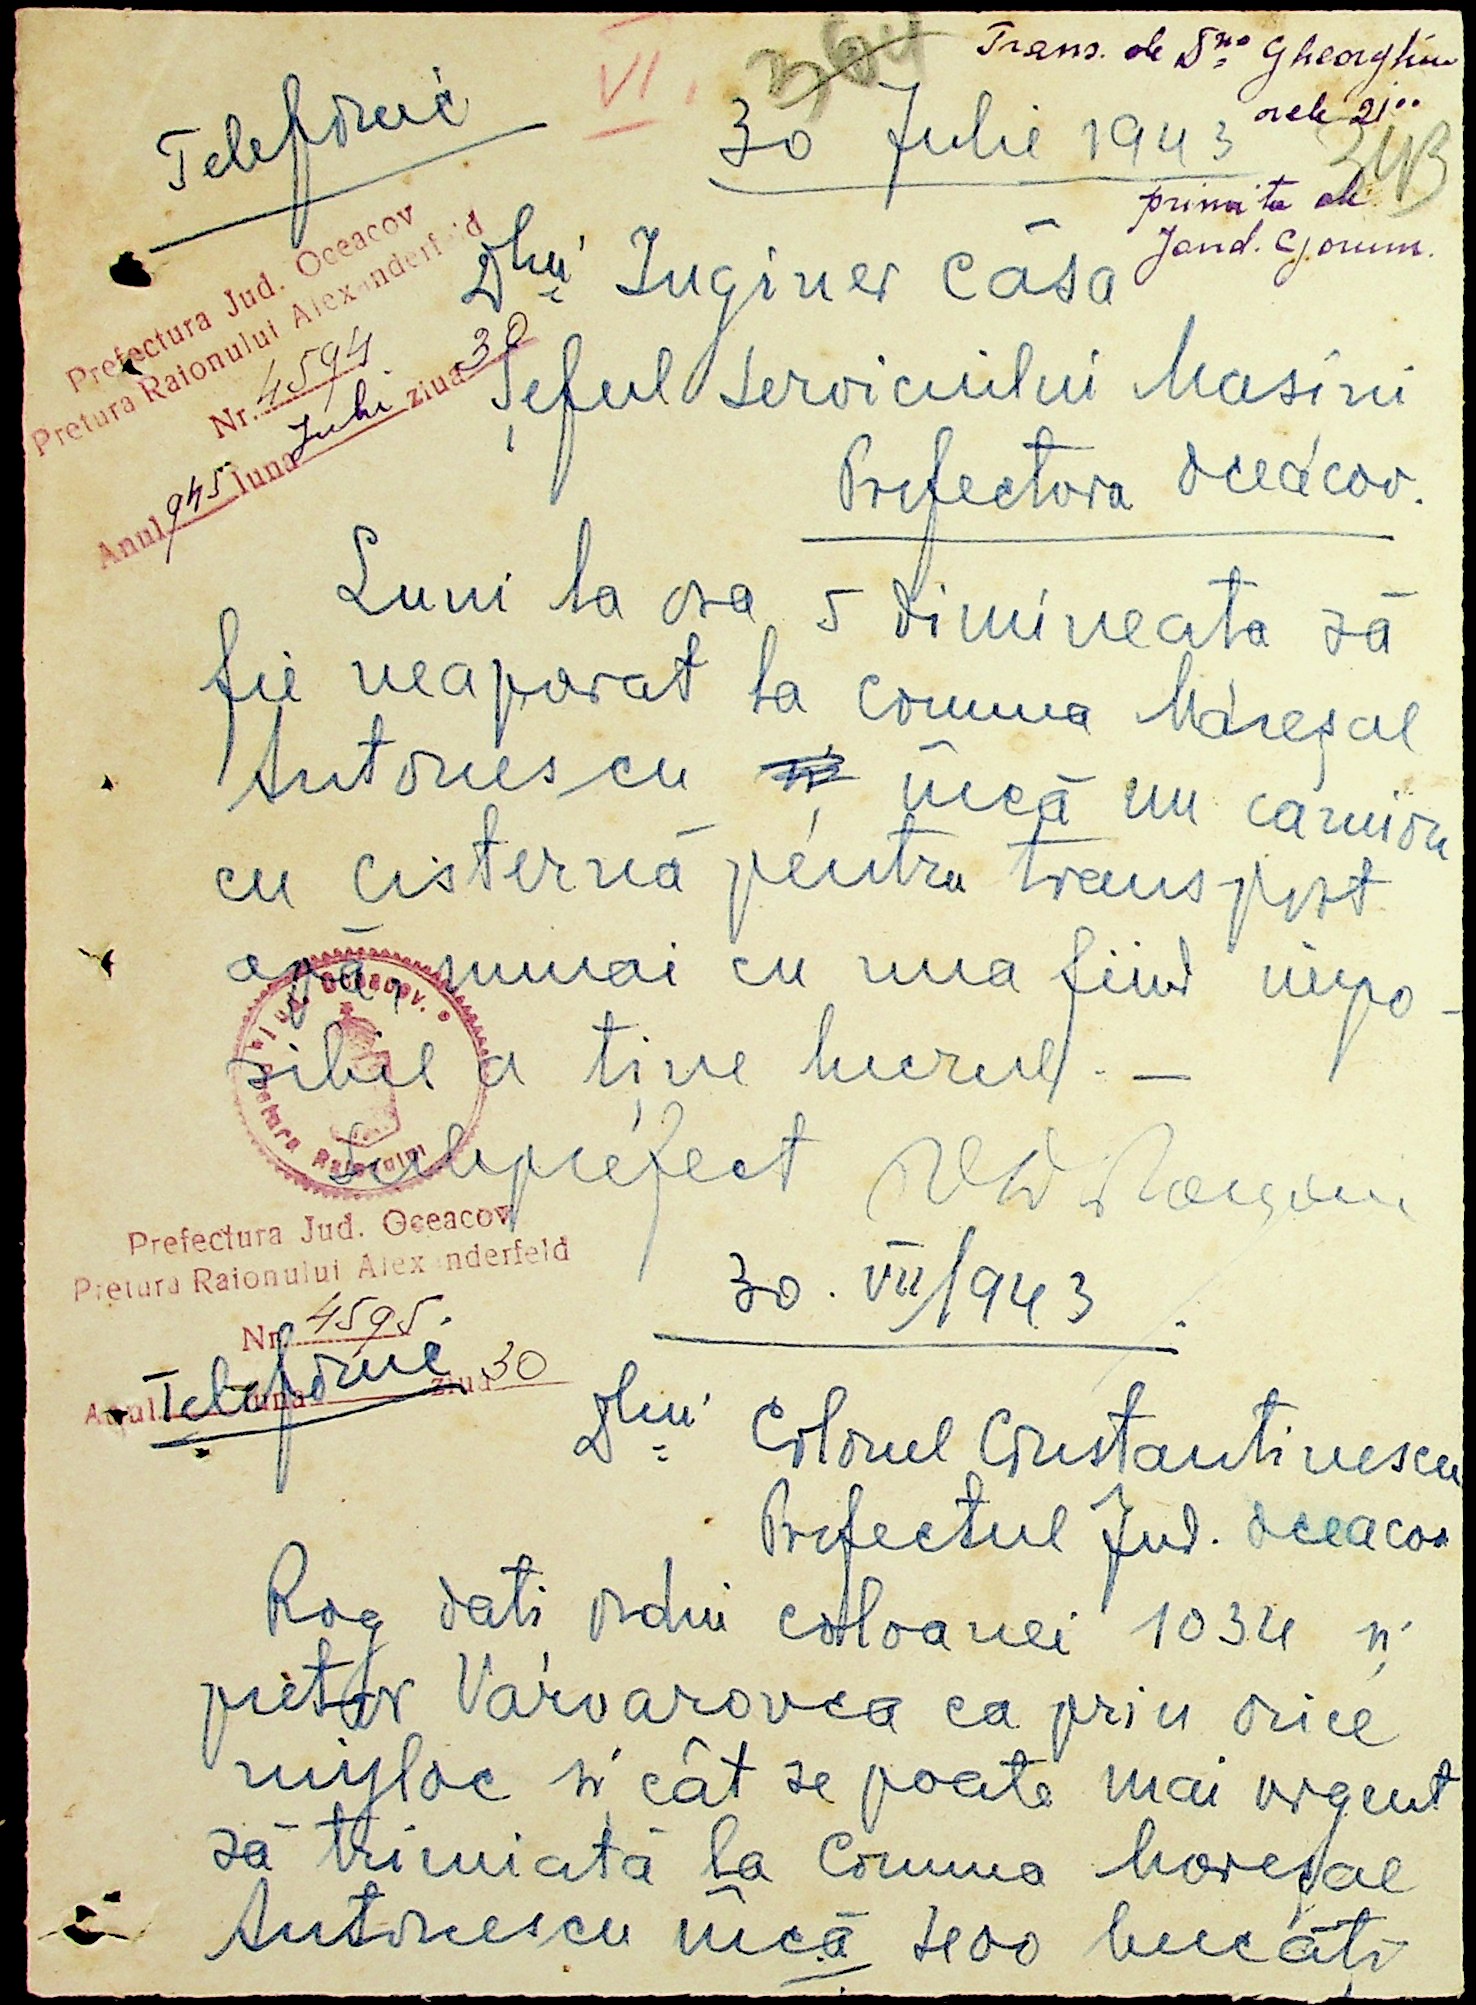 VI.
364
Trans. de Dna Gheorghiu
orele 21oo
343
primita de
Jand.
Telefonic
30 Julie 1943
Prefectura Jud. Oceacov
Pretura Raionului Alexanderfeld
Nr. 4594
Anul 943 luna Julie ziua 30
Dlui Inginer Căsa
Șeful Serviciului Masini
Prefectura Oceacov.
Luni la ora 5 dimineata să
fie neaparat la comuna Mareșal
Antonescu încă un camion
cu cisternă pentru transport
apă, numai cu una fiind impo-
sibil a ține lucrul. —
Subprefect
Jud. Oceacov.
Pretura Raionului
Prefectura Jud. Oceacov
Pretura Raionului Alexanderfeld
Nr. 4595
Anul luna ziua 30
30. VII/943
Telefonic
Dlui Colonel Constantinescu
Prefectul Jud. Oceacov
Rog dati ordin coloanei 1034 și
pretor Varvarovca ca prin orice
mijloc și cât se poate mai urgent
să trimiată la Comuna Mareșal
Antonescu încă bucăți